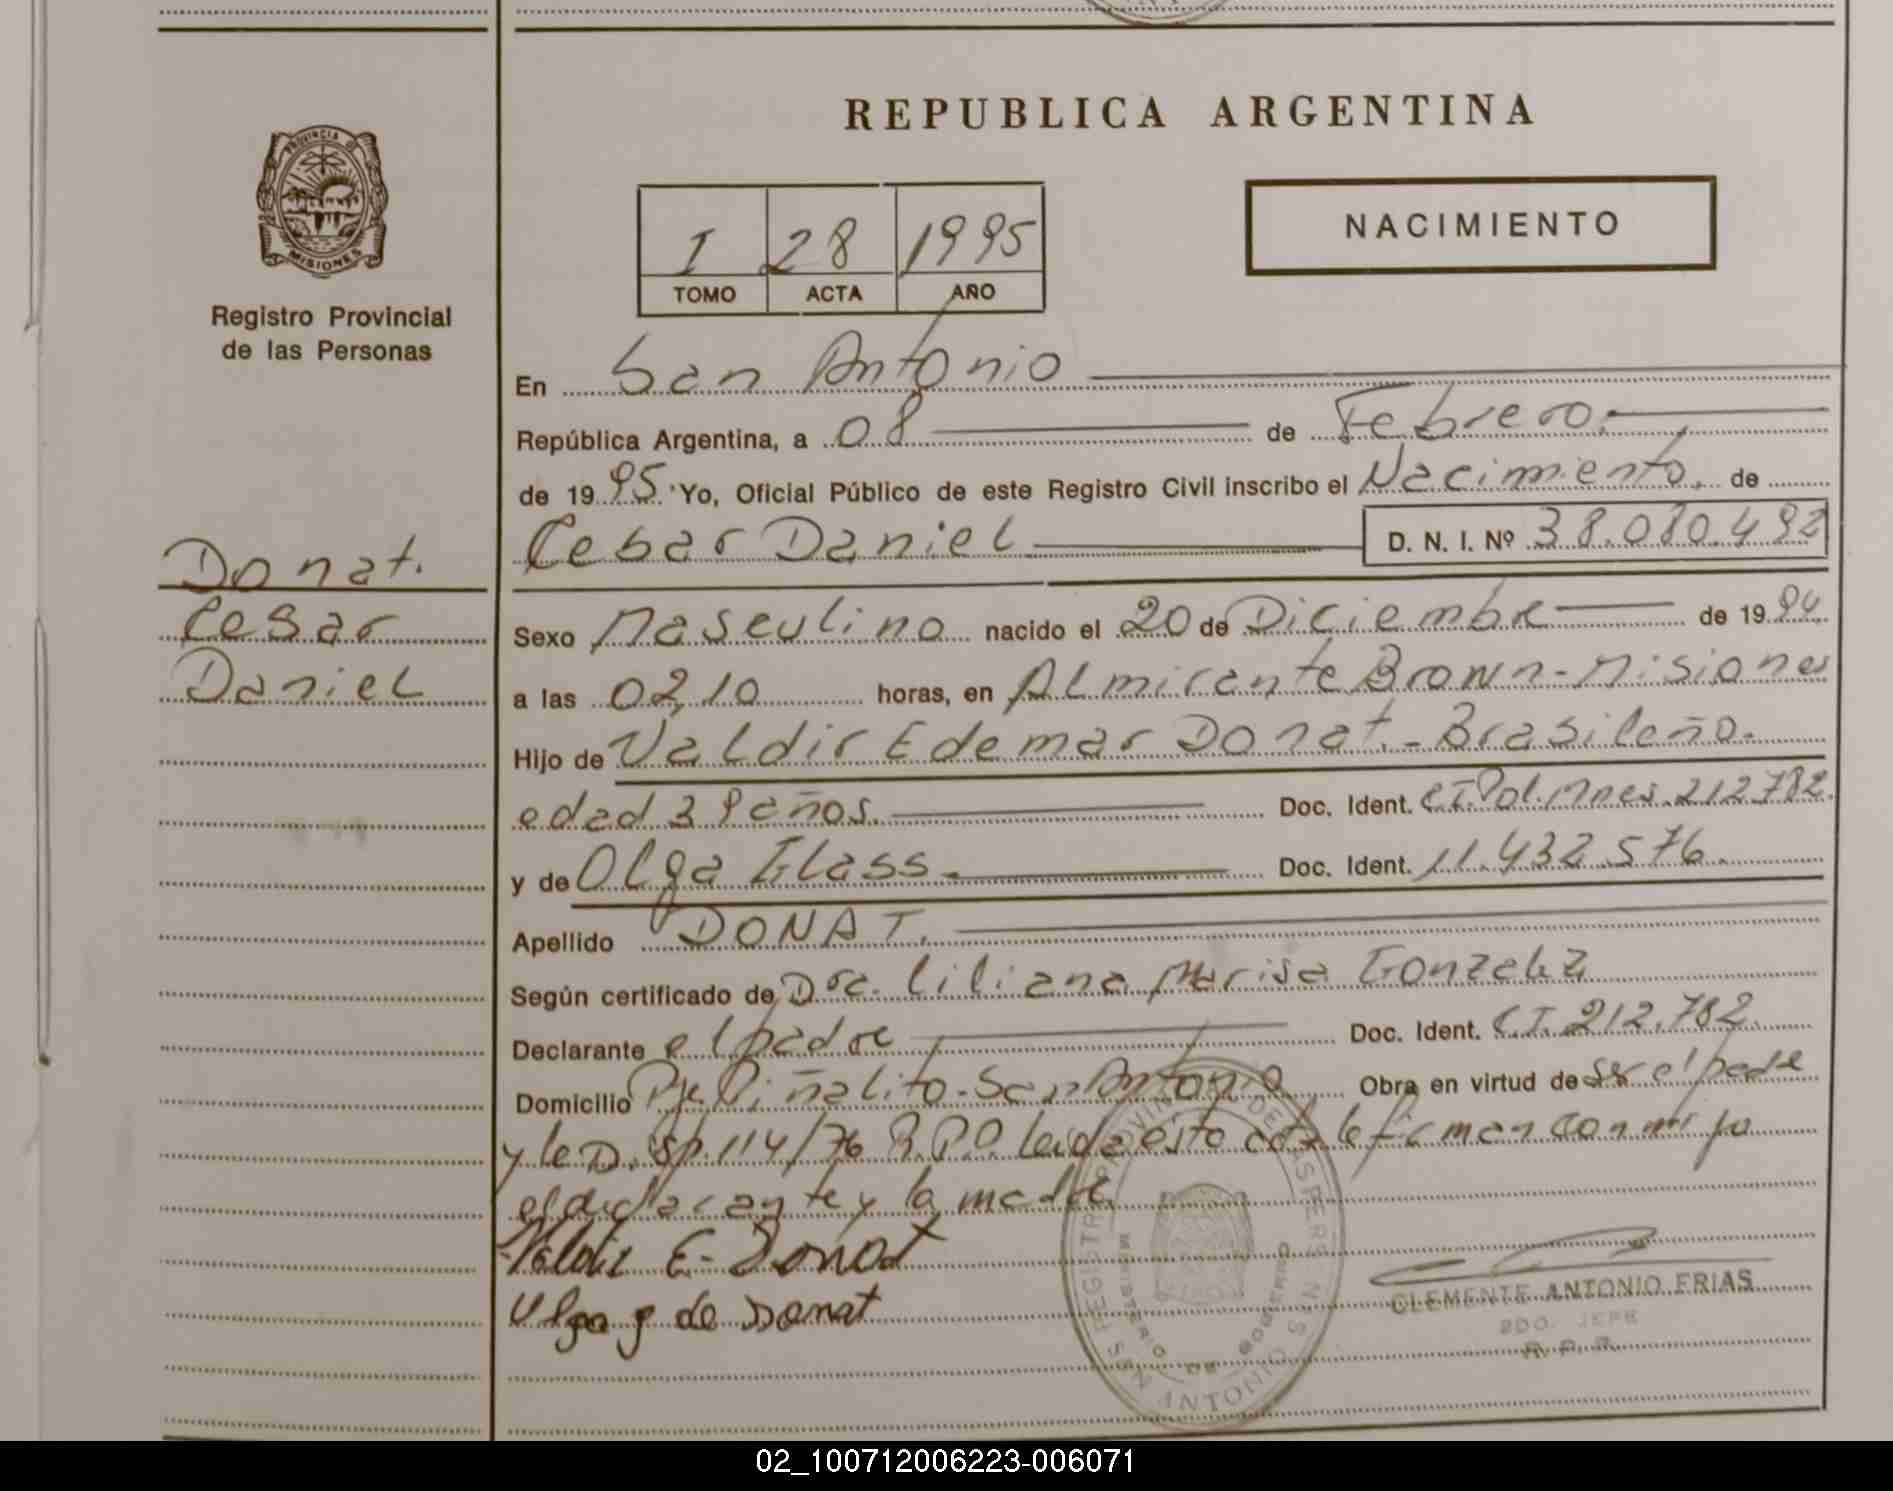 REPUBLICA ARGENTINA
PROVINCIA DE
MISIONES
Registro Provincial
de las Personas
I 28 1995
TOMO ACTA AÑO
NACIMIENTO
En San Antonio
República Argentina, a 08 de Febrero.
de 1995. Yo, Oficial Público de este Registro Civil inscribo el Nacimiento. de
Cesar Daniel D. N. I. Nº 38.080.492
Donat.
Cesar
Daniel
Sexo Masculino nacido el 20 de Diciembre de 1994.
a las 02,10 horas, en Almirante Brown - Misiones
Hijo de Valdir Edemar Donat. - Brasileño.
edad 39 años. Doc. Ident. CI. Pol. Mnes. 212.782.
y de Olga Glass. Doc. Ident. 11.432.576.
Apellido DONAT.
Según certificado de Dra. Liliana Marisa Gonzalez
Declarante el padre Doc. Ident. C.I. 212.782.
Domicilio Pje. Piñalito - San Antonio Obra en virtud de ser el padre
y le Disp. 114/76 R.P.P. leida esta acta le firman conmigo
el declarante y la madre.
Valdir E. Donat
Olga g de Donat
CLEMENTE ANTONIO FRIAS
2DO. JEFE
R. P. P.
MINISTERIO DE GOBIERNO
SAN ANTONIO
02_100712006223-006071